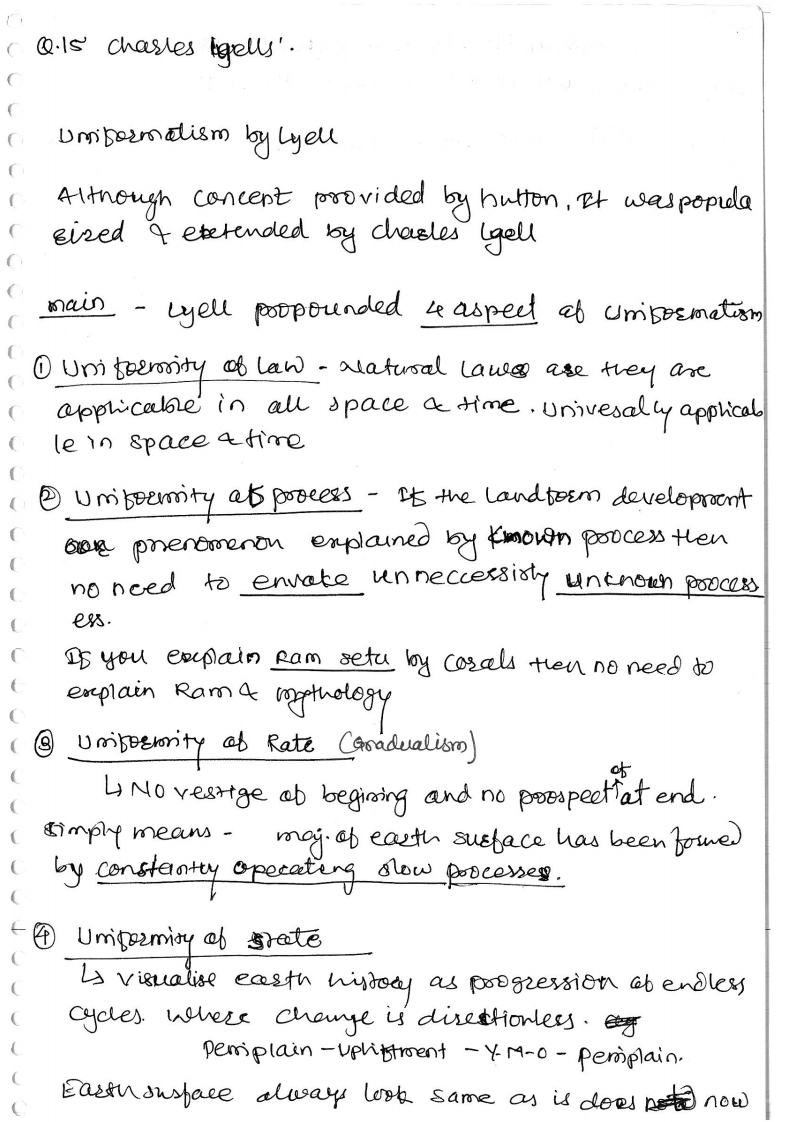 Q.15 Charles Lyells'.
Uniformatism by Lyell
Although concept provided by hutton, It was popula
rized & extended by charles Lyell
main - Lyell propounded 4 aspect of Uniformatism
① Uniformity of Law - Natural Laws are they are
applicable in all space & time. Univesally applicab
le in space & time
② Uniformity of process - If the Landform development
phenomenon explained by known process then
no need to envoke unneccessirly unknown process
ess.
If you explain Ram setu by corals then no need to
explain Ram & mythology
③ Uniformity of Rate (Gradualism)
↳ No vestige of begining and no prospect of at end.
simply means - maj. of earth surface has been formed
by constantly operating slow processes.
④ Uniformity of state
↳ visualise earth history as progression of endless
cycles. where change is directionless.
Peniplain - Upliftment - Y-M-O - peniplain.
Earth surface always look same as is does now